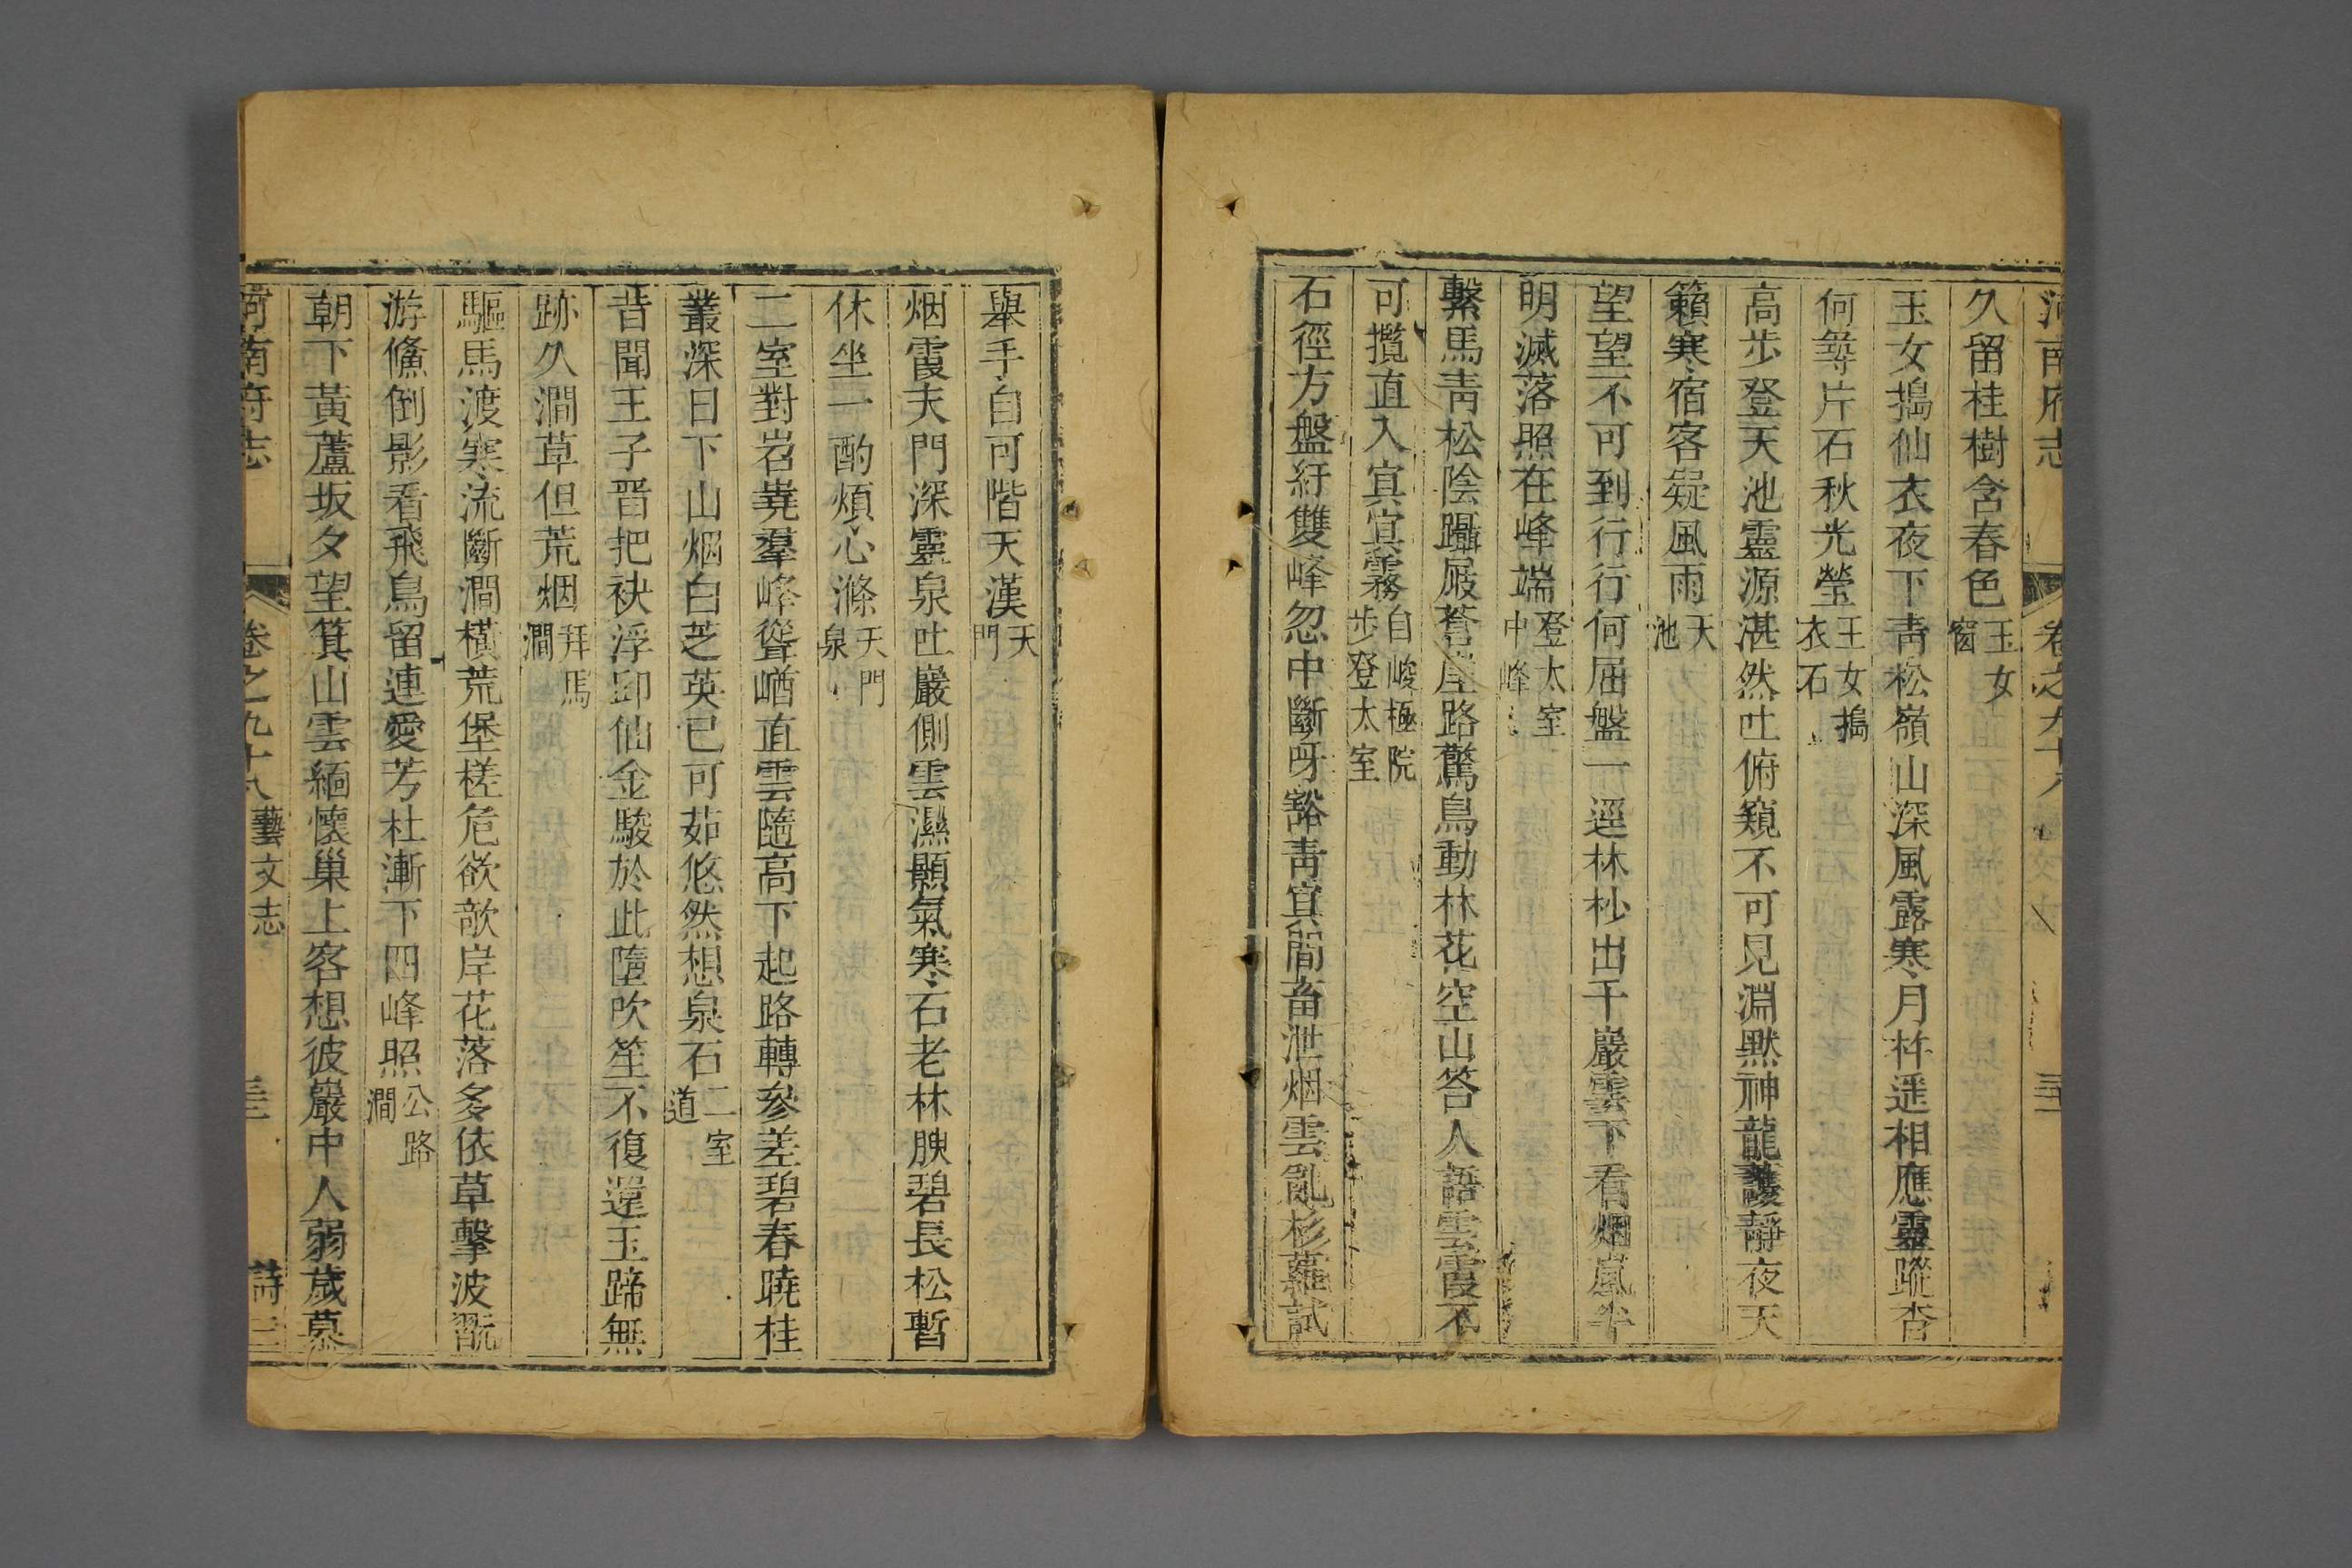 河南府志 卷之九十八
久留桂樹含春色玉女窗
玉女搗仙衣夜下青松嶺山深風露寒月杵遥相應靈蹤杳
何尋片石秋光瑩玉女搗衣石
高步登天池靈源湛然吐俯窺不可見淵默神龍護靜夜天
籟寒宿客疑風雨天池
望望不可到行行何屈盤一逕林杪出千巖雲下看烟嵐半
明滅落照在峰端登太室中峰
繫馬青松陰躡屐蒼崖路驚鳥動林花空山答人語雲霞不
可攬直入寘寘霧自峻極院步登太室
石徑方盤紆雙峰忽中斷呀豁青寘間畜泄烟雲亂杉蘿試
舉手自可階天漢天門
烟霞天門深靈泉吐巖側雲濕顥氣寒石老林腴碧長松暫
休坐一酌煩心滌天門泉
二室對岧嶤羣峰聳崷直雲隨高下起路轉參差碧春曉桂
叢深日下山烟白芝英已可茹悠然想泉石二室道
昔聞王子晉把袂浮邱仙金駿於此墮吹笙不復還玉蹄無
跡久澗草但荒烟拜馬澗
驅馬渡寒流斷澗横荒堡槎危欲欹岸花落多依草擊波翫
游鯈倒影看飛鳥留連愛芳杜漸下四峰照公路澗
朝下黃蘆坂夕望箕山雲緬懷巢上客想彼巖中人弱歲慕
河南府志 卷之九十八 藝文志 詩三